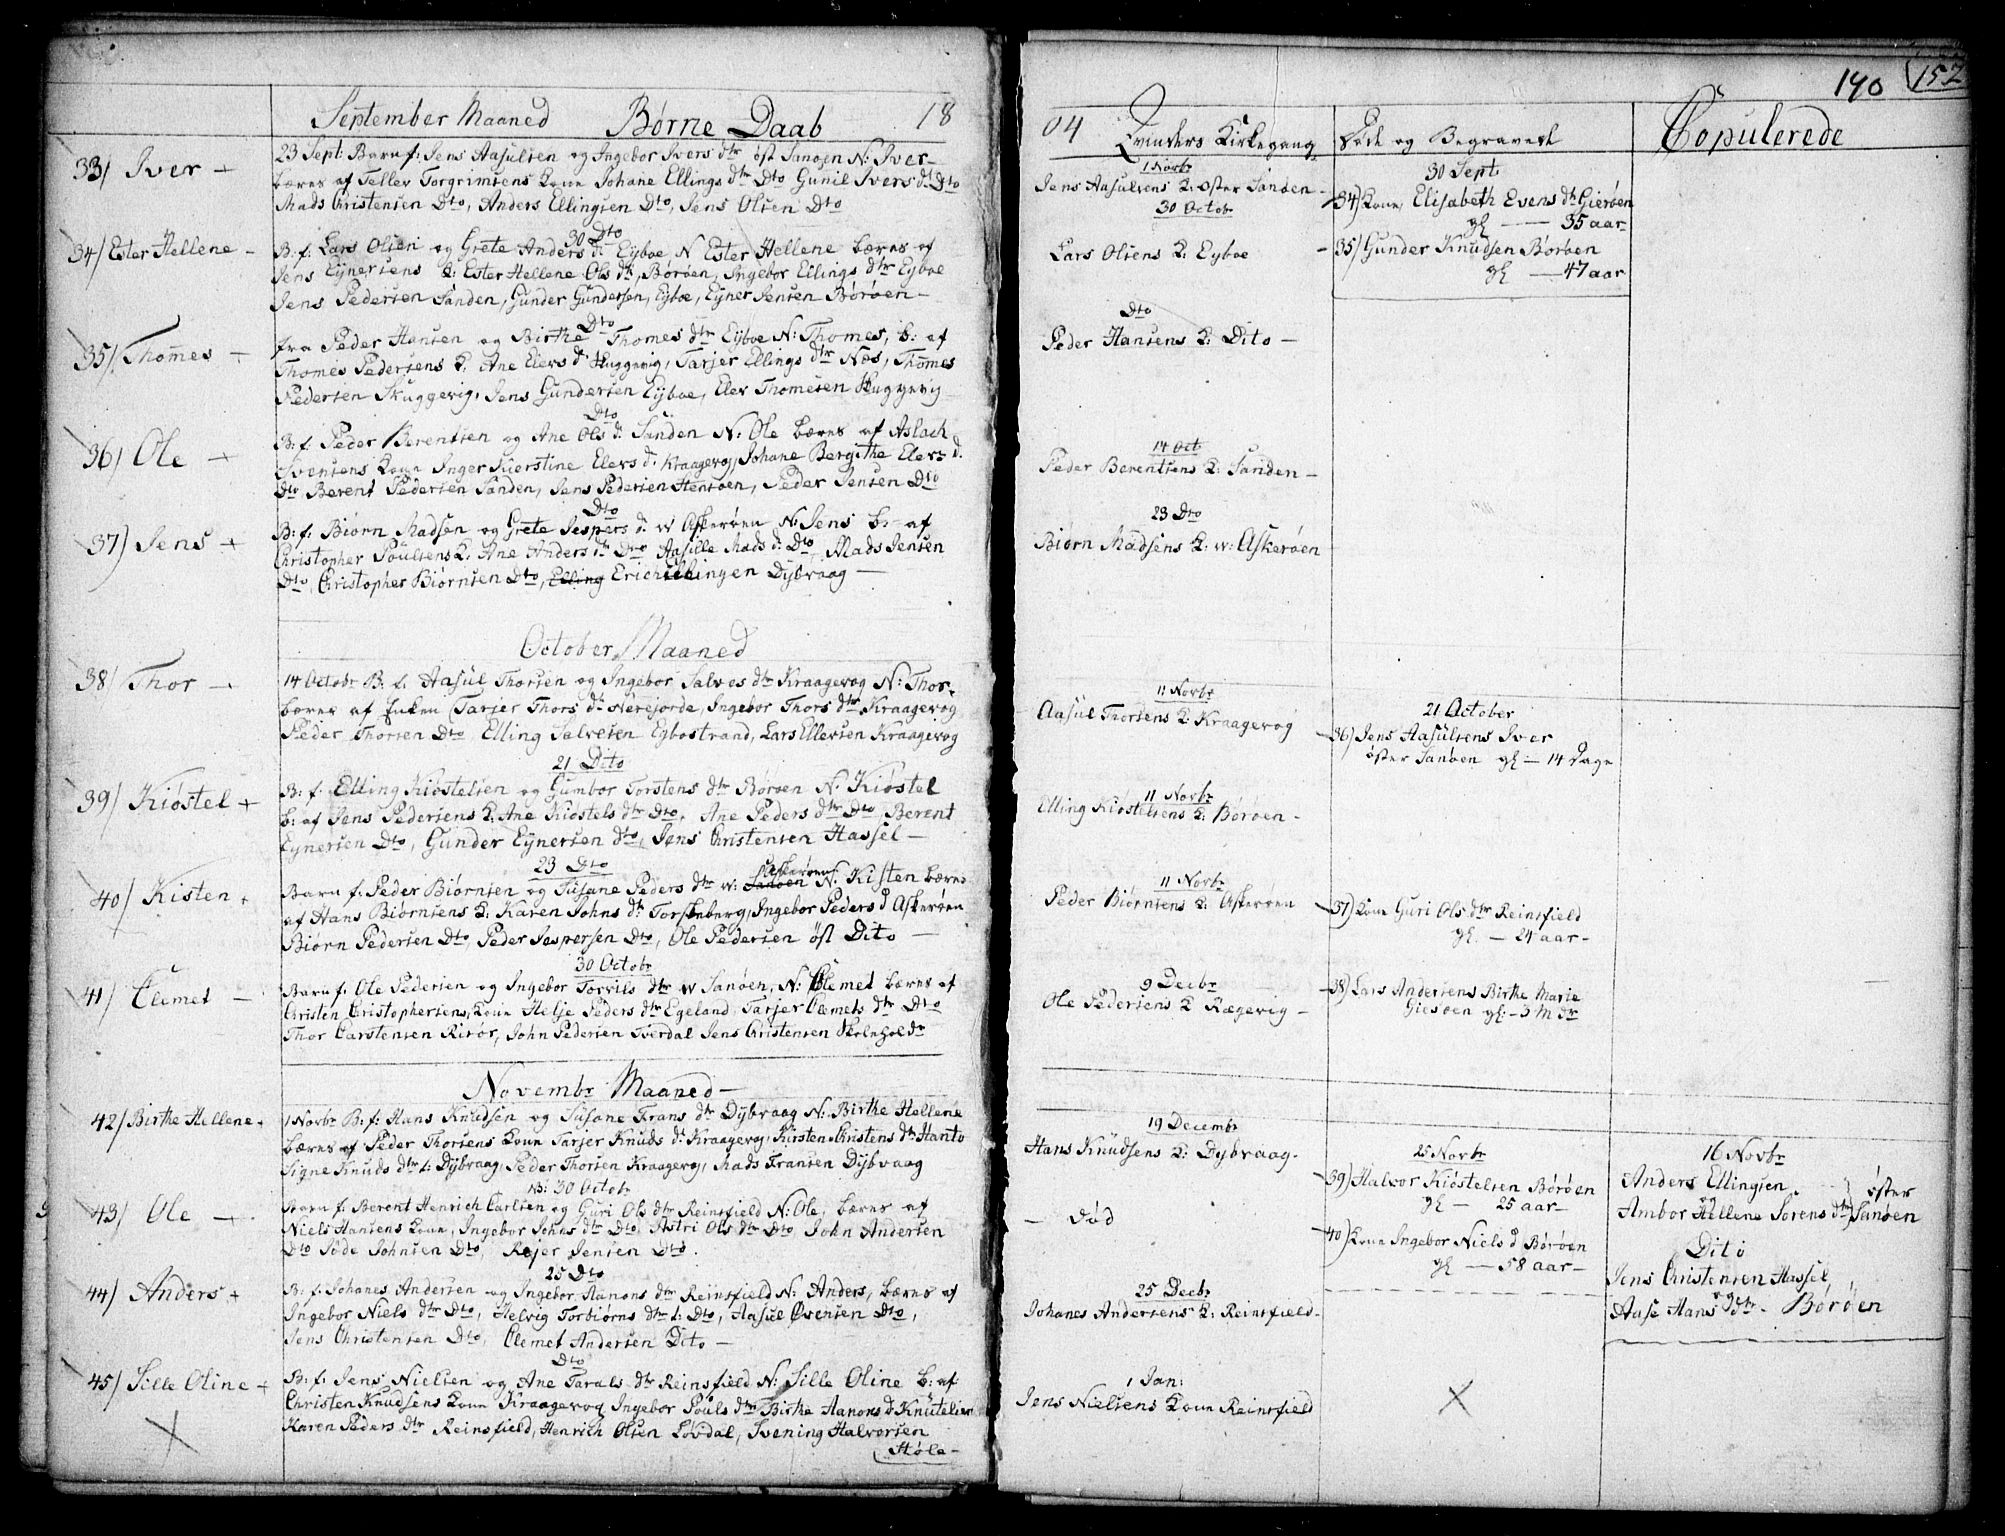 September Maaned Børne Daab 18
33) Iver +
23 Sept: Barn f: Jens Aasulsen og Ingebor Ivers dtr øst Sanøen N: Iver
bæres af Tellev Torgrimsens Kone Johane Ellings dtr Dto Gunil Ivers d: Dto
Mads Christensen Dto, Anders Ellingsen Dto, Jens Olsen Dto
30 Dto
34) Ester Hellene -
B: f: Lars Olsen og Grete Anders d: Eyboe N Ester Hellene bæres af
Jens Eynersens K: Ester Hellene Ols dtr, Børøen, Ingebor Ellings dtr Eyboe
Jens Pedersen Sanden, Gunder Gundersen, Eyboe, Eyner Jensen Børøen -
Dto
35) Thomes +
fra Peder Hansen og Birthe Thomes dtr Eyboe N: Thomes, b: af
Thomes Pedersens K: Ane Elers d: Skuggevig, Tarjer Ellings dtr Næs, Thomes
Pedersen Skuggevig, Jens Gundersen Eyboe, Elev Thomesen Skuggevig
Dto
36) Ole +
B: f: Peder Berentsen og Ane Ols d: Sanden N: Ole bæres af Aslach
Svensens Kone Inger Kierstine Elers d: Kraagevog, Johane Bergithe Elers d.
Dto Berent Pedersen Sanden, Jens Pedersen Hensøen, Peder Jensen Dto
Dto
37) Jens +
B: f: Biørn Madsen og Grete Jespers d: w Askerøen N: Jens b: af
Christopher Poulsens K: Ane Anders dtr Dto Aasille Mads d: Dto, Mads Jensen
Dto, Christopher Biørnsen Dto, Elling Erich Ellingsen Dybvaag -
October Maaned
38) Thor +
14 Octobr B: f: Aasul Thorsen og Ingebor Salves dtr Kraagevog N: Thor
bæres af Enken Tarjer Thors d: Nerejorde, Ingebor Thors dtr Kraagevog
Peder Thorsen Dto Elling Salvesen Eybostrand, Lars Ellevsen Kraagevog
21 Dito
39) Kiøstel +
B: f: Elling Kiøstelsen og Gumbor Torstens dtr Børøen N: Kiøstel
b: af Jens Pedersens K: Ane Kiøstels dtr Dto, Ane Peders dtr Dto Berent
Eynersen Dto, Gunder Eynersen Dto, Jens Christensen Hassel -
23 Dto
40) Kisten +
Barn f: Peder Biørnsen og Susane Peders dtr w: Sanøen Askerøen N: Kisten bæres
af Hans Biørnsens K: Karen Johns dtr Torskeberg, Ingebor Peders d Askerøen
Biørn Pedersen Dto Peder Jespersen Dto, Ole Pedersen øst Dito -
30 Octobr
41) Clemet -
Barn f: Ole Pedersen og Ingebor Torvils dtr w Sanøen, N: Clemet bæres af
Christen Christophersens, Kone Helje Peders dtr Egeland, Tarjer Clemets dtr Dto
Thor Carstensen Risør, John Pedersen Tverdal Jens Christensen Skolehold:
Novembr Maaned -
42) Birthe Hellene +
1 Norbr B: f: Hans Knudsen og Susane Frans dtr Dybvaag N: Birthe Hellene
bæres af Peder Thorsens Kone Tarjer Knuds d: Kraagevog, Kirsten Christens dtr Hanto
Signe Knuds dtr: Dybvaag, Peder Thorsen Kraagevog, Mads Fransen Dybvaag
NB: 30 Octobr
43) Ole +
Barn f: Berent Henrich Carlsen og Guri Ols dtr Reinsfield N: Ole, bæres af
Niels Hansens Kone, Ingebor Johns dtr Dto, Astri Ols dtr Dto John Andersen
Dto Søde Johnsen Dto, Rejer Jensen Dto.
25 Dto
44) Anders +
B: f: Johanes Andersen og Ingebor Aanons dtr Reinsfield N: Anders, bæres af
Ingebor Niels dtr Dto, Helvig Torbiørns dtr: Dto, Aasul Evensen Dto,
Jens Christensen Dto, Clemet Andersen Dito -
Dto
45) Sille Oline +
B: f: Jens Nielsen og Ane Tarals dtr Reinsfield N: Sille Oline b: af
Christen Knudsens Kone Kraagevog Ingebor Pouls dtr Birthe Aanons d Knutelien
Karen Peders dtr Reinsfield, Henrich Olsen Løvdal, Svening Halvorsen
Støle -
04 190 152
Qvinders Kirkegang
1 Norbr
Jens Aasulsens K: øster Sanøen -
30 Octobr
Lars Olsens K: Eyboe
Dto
Peder Hansens K: Dito -
14 Oct
Peder Berentsens K: Sanden -
23 Dto
Biørn Madsens K: w: Askerøen
11 Norbr
Aasul Thorsens K: Kraagevog
11 Norbr
Elling Kiøstelsens K: Børøen -
11 Norbr
Peder Biørnsens K: Askerøen
9 Decbr
Ole Pedersens K Rægevig -
19 Decembr
Hans Knudsens K: Dybvaag -
- død
25 Decbr
Johanes Andersens K: Reinsfield -
1 Jan:
Jens Nielsens Kone Reinsfield
Døde og Begravede
30 Sept
34) Kone Elisabeth Evens dtr Gierøen
gl - 35 aar -
35) Gunder Knudsen Børøen
gl - 47 aar
21 October
36) Jens Aasulsens Iver
øster Sanøen gl - 14 Dage
37) Kone Guri Ols dtr Reinsfield
gl. - 24 aar -
38) Lars Andersens Birthe Marie
Giesøen gl: - 3 Mdr
25 Norbr
39) Halvor Kiøstelsen Børøen
gl - 25 aar -
40) Kone Ingebor Niels d Børøen
gl - 58 aar -
Copulerede
16 Norbr
Anders Ellingsen
og
Ambor Hellene Sorens dtr
øster
Sanøen
Dito
Jens Christensen Hassel
og
Aase Hans dtr - Børøen